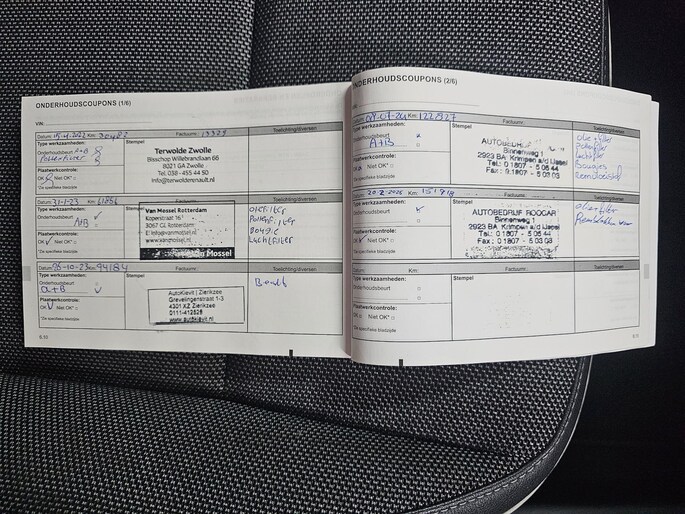 ONDERHOUDSCOUPONS (1/6)
VIN:
Datum: 15-4-2022 Km: 30482 Factuurnr.: 13329
Type werkzaamheden: Stempel Toelichting/diversen
Onderhoudsbeurt A+B
Pollenfilter
Terwolde Zwolle
Bisschop Willebrandlaan 66
8021 GA Zwolle
Tel. 038 - 455 44 80
info@terwolderenault.nl
Plaatwerkcontrole:
OK Niet OK*
*Zie specifieke bladzijde
Datum: 31-1-23 Km: 61856 Factuurnr.:
Type werkzaamheden: Stempel Toelichting/diversen
Onderhoudsbeurt
A+B
Van Mossel Rotterdam
Koperstraat 16
3067 GL Rotterdam
www.vanmossel.nl
Van Mossel
oliefilter
Pollenfilter
Bougie
Luchtfilter
Plaatwerkcontrole:
OK Niet OK*
*Zie specifieke bladzijde
Datum: 26-10-23 Km: 94184 Factuurnr.:
Type werkzaamheden: Stempel Toelichting/diversen
Onderhoudsbeurt
A+B
AutoKievit | Zierikzee
Grevelingenstraat 1-3
4301 XZ Zierikzee
0111-412526
www.autokievit.nl
Beurt
Plaatwerkcontrole:
OK Niet OK*
*Zie specifieke bladzijde
6.10
ONDERHOUDSCOUPONS (2/6)
VIN:
Datum: 08-07-24 Km: 122927 Factuurnr.:
Type werkzaamheden: Stempel
Onderhoudsbeurt
A+B
AUTOBEDRIJF
Binnenweg 1
2923 BA Krimpen a/d IJssel
Tel.: 0 1807 - 5 06 44
Fax: 0 1807 - 5 03 03
oliefilter
Luchtfilter
Bougies
Remvloeistof
Plaatwerkcontrole:
OK Niet OK*
*Zie specifieke bladzijde
20-2-2026 Km: 151918 Factuurnr.:
Type werkzaamheden: Stempel
Onderhoudsbeurt
AUTOBEDRIJF ROOCAR
Binnenweg 1
2923 BA Krimpen a/d IJssel
Tel.: 0 1807 - 5 06 44
Fax: 0 1807 - 5 03 03
oliefilter
Plaatwerkcontrole:
OK Niet OK*
*Zie specifieke bladzijde
Datum: Km: Factuurnr.:
Type werkzaamheden: Stempel Toelichting/diversen
Onderhoudsbeurt
Plaatwerkcontrole:
OK Niet OK*
*Zie specifieke bladzijde